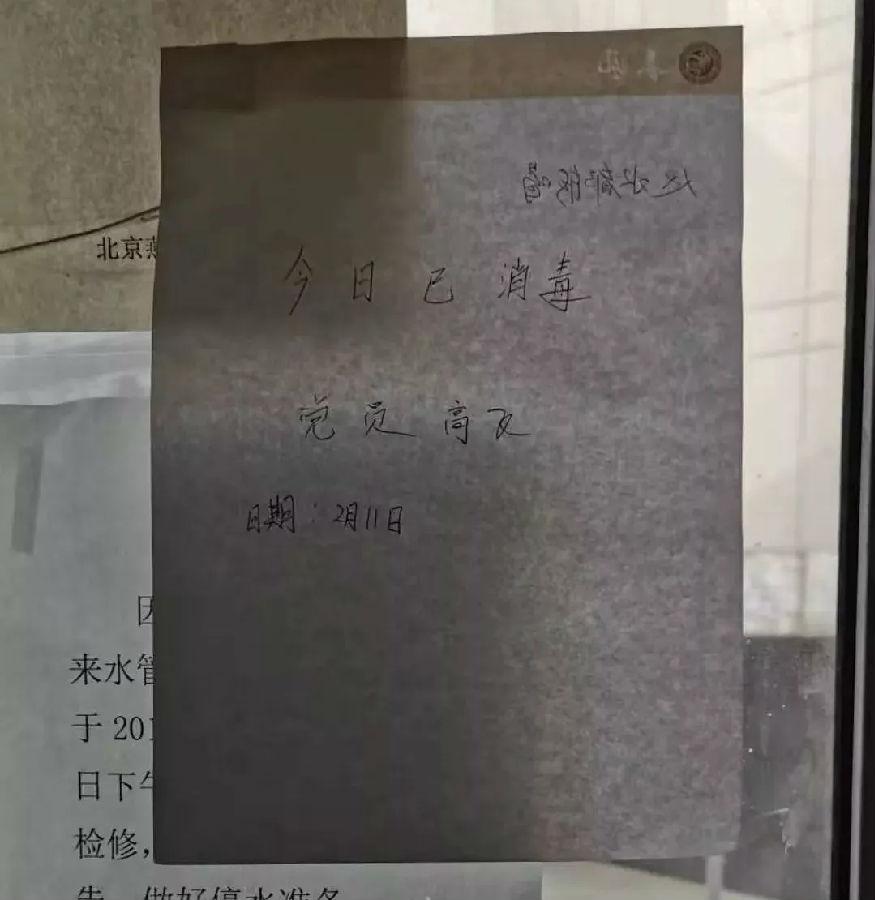 北京
今日已消毒
党员高
日期：2月11日
因
来水管
于 201
日下午
检修，
告，做好停水准备